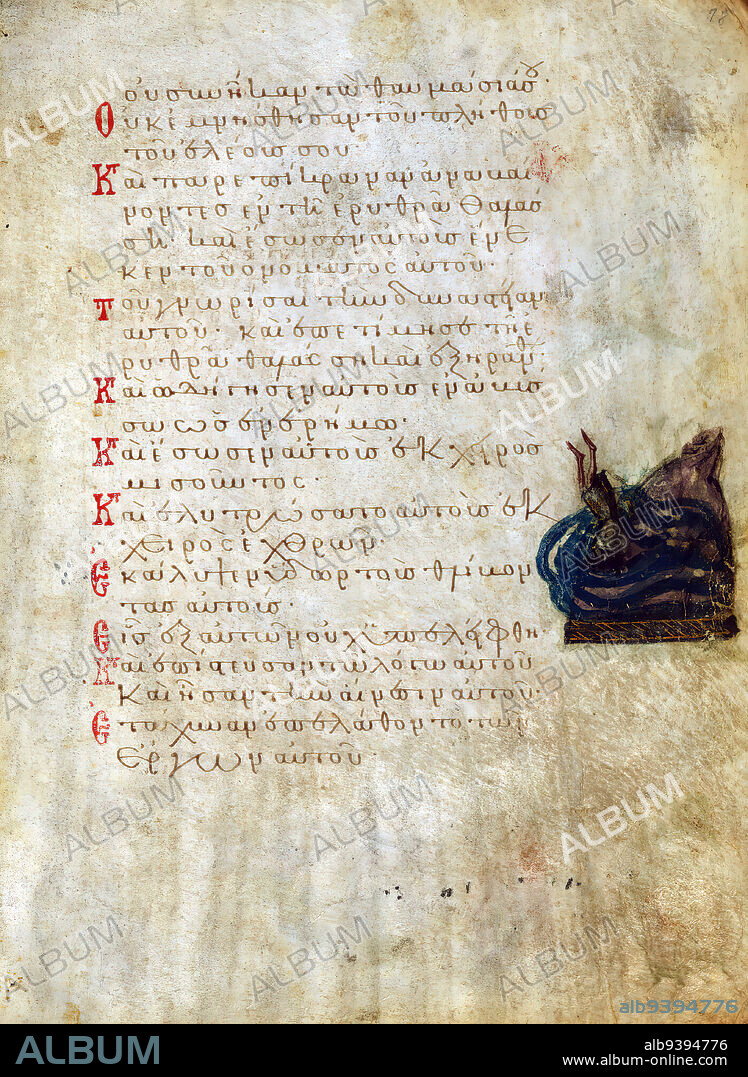 78
οὐ συνῆκαν τὰ θαυμάσιά σου·
Οὐκ ἐμνήσθησαν τοῦ πλήθους
τοῦ ἐλέους σου·
Καὶ παρεπίκραναν ἀναβαί
νοντες ἐν τῇ ἐρυθρᾷ θαλάσ
σῃ· καὶ ἔσωσεν αὐτοὺς ἕνε
κεν τοῦ ὀνόματος αὐτοῦ·
Τοῦ γνωρίσαι τὴν δυναστείαν
αὐτοῦ· καὶ ἐπετίμησε τῇ ἐ
ρυθρᾷ θαλάσσῃ καὶ ἐξηράνθη·
Καὶ ὡδήγησεν αὐτοὺς ἐν ἀβύσ
σῳ ὡς ἐν ἐρήμῳ·
Καὶ ἔσωσεν αὐτοὺς ἐκ χειρὸς
μισοῦντος·
Καὶ ἐλυτρώσατο αὐτοὺς ἐκ
χειρὸς ἐχθρῶν
Ἐκάλυψεν ὕδωρ τοὺς θλίβον
τας αὐτούς·
Εἷς ἐξ αὐτῶν οὐχ ὑπελείφθη
Καὶ ἐπίστευσαν τῷ λόγῳ αὐτοῦ
Καὶ ᾖσαν τὴν αἴνεσιν αὐτοῦ·
Ἐτάχυναν ἐπελάθοντο τῶν
ἔργων αὐτοῦ·
alb9394776
ALBUM
alb9394776
www.album-online.com